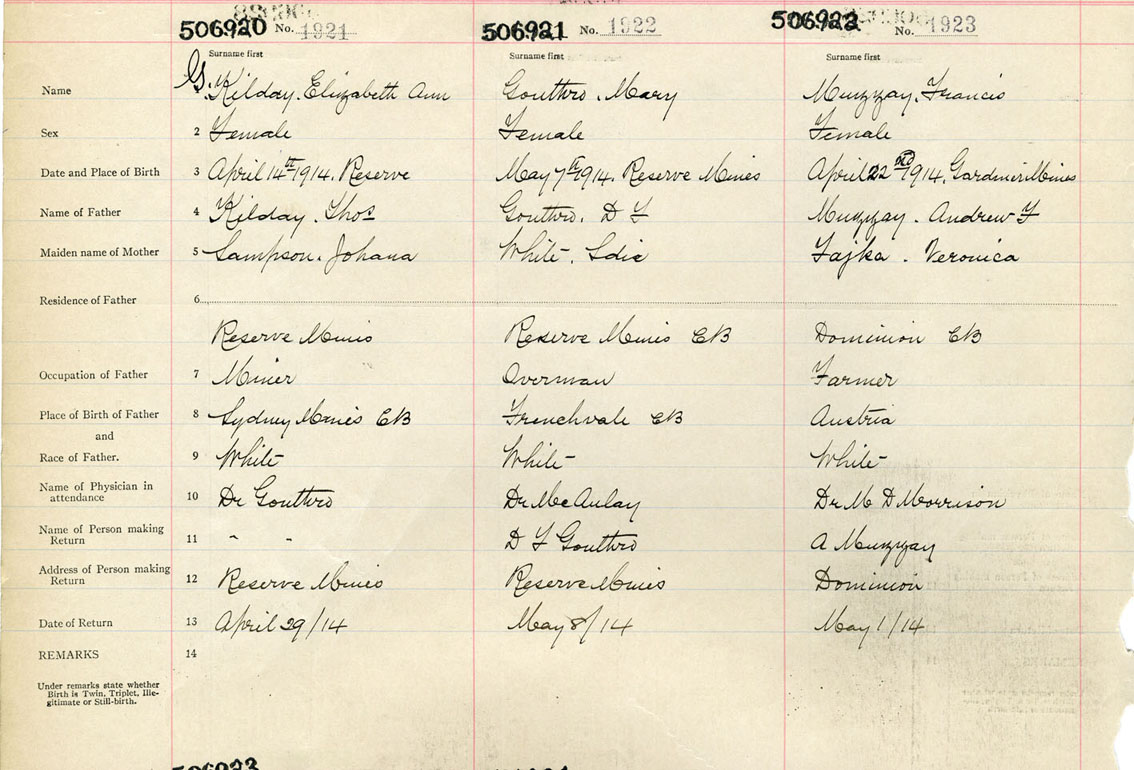 506920 No. 1921 506921 No. 1922 506922 No. 1923
Surname first Surname first Surname first
Name 1 Kilday. Elizabeth Ann Gouthro. Mary Muzzay. Francis
Sex 2 Female Female Female
Date and Place of Birth 3 April 14th 1914. Reserve May 7th 1914. Reserve Mines April 22nd 1914. Gardiner Mines
Name of Father 4 Kilday. Thos Gouthro. D F Muzzay. Andrew F
Maiden name of Mother 5 Sampson. Johana White. Sdie Fajka. Veronica
Residence of Father 6
Reserve Mines Reserve Mines CB Dominion CB
Occupation of Father 7 Miner Overman Farmer
Place of Birth of Father 8 Sydney Mines CB Frenchvale CB Austria
and
Race of Father. 9 White White White
Name of Physician in
attendance 10 Dr Gouthro Dr McAulay Dr M D Morrison
Name of Person making
Return 11 " " D F Gouthro A Muzzay
Address of Person making
Return 12 Reserve Mines Reserve Mines Dominion
Date of Return 13 April 29/14 May 8/14 May 1/14
REMARKS 14
Under remarks state whether
Birth is Twin, Triplet, Ille-
gitimate or Still-birth.
506923